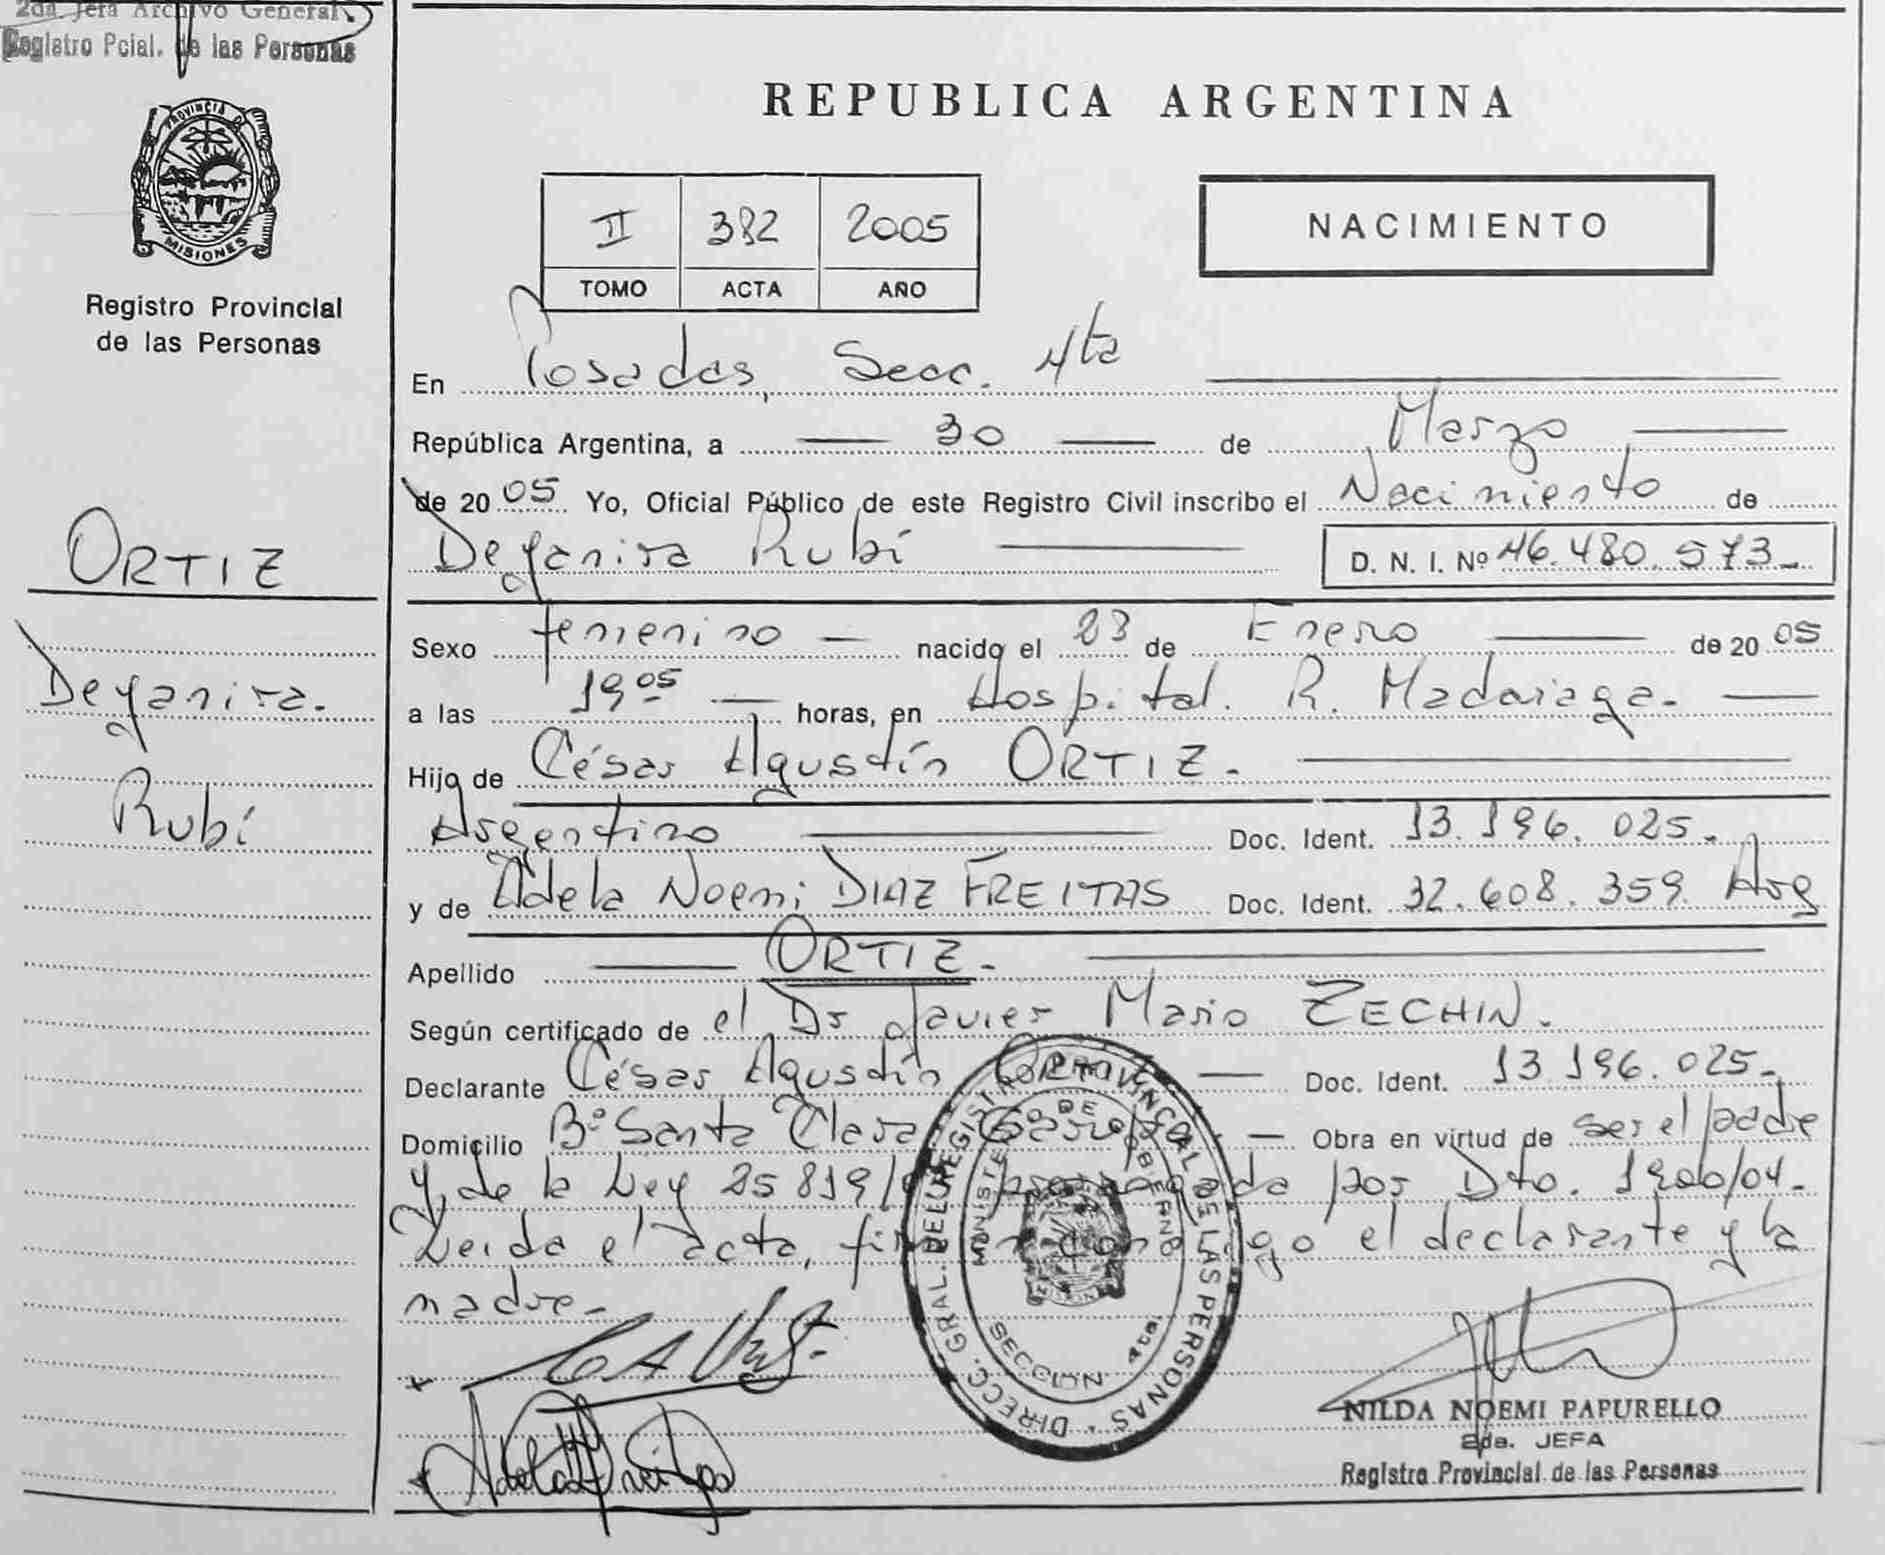 2da Jefa Archivo General
Registro Pcial. de las Personas
PROVINCIA DE
MISIONES
Registro Provincial
de las Personas
ORTIZ
Deyanira.
Rubí
REPUBLICA ARGENTINA
II 382 2005
TOMO ACTA AÑO
NACIMIENTO
En Posadas, Secc. 4ta
República Argentina, a 30 de Marzo
de 2005 Yo, Oficial Público de este Registro Civil inscribo el Nacimiento de
Deyanira Rubí D. N. I. Nº 46.480.573
Sexo femenino nacido el 23 de Enero de 2005
a las 19 05 horas, en Hospital. R. Madariaga.
Hijo de César Agustín ORTIZ.
Argentino Doc. Ident. 13.196.025.
y de Adela Noemi DIAZ FREITAS Doc. Ident. 32.608.359. Arg
Apellido ORTIZ.
Según certificado de el Dr Javier Mario ZECHIN.
Declarante César Agustín ORTIZ Doc. Ident. 13 196.025.
Domicilio Bº Santa Clara Garupá Obra en virtud de ser el padre
y de la Ley 25819/ prorrogada por Dto. 1900/04.
Leída el acta, firman conmigo el declarante y la
madre.
DIRECC. GRAL. DEL REGISTRO PROVINCIAL DE LAS PERSONAS
MINISTERIO DE GOBIERNO
SECCION 4ta.
NILDA NOEMI PAPURELLO
2da. JEFA
Registro Provincial de las Personas